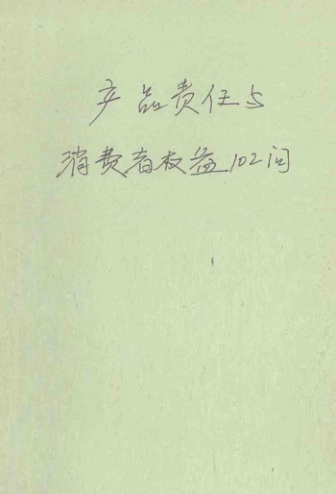 产品责任与
消费者权益102问